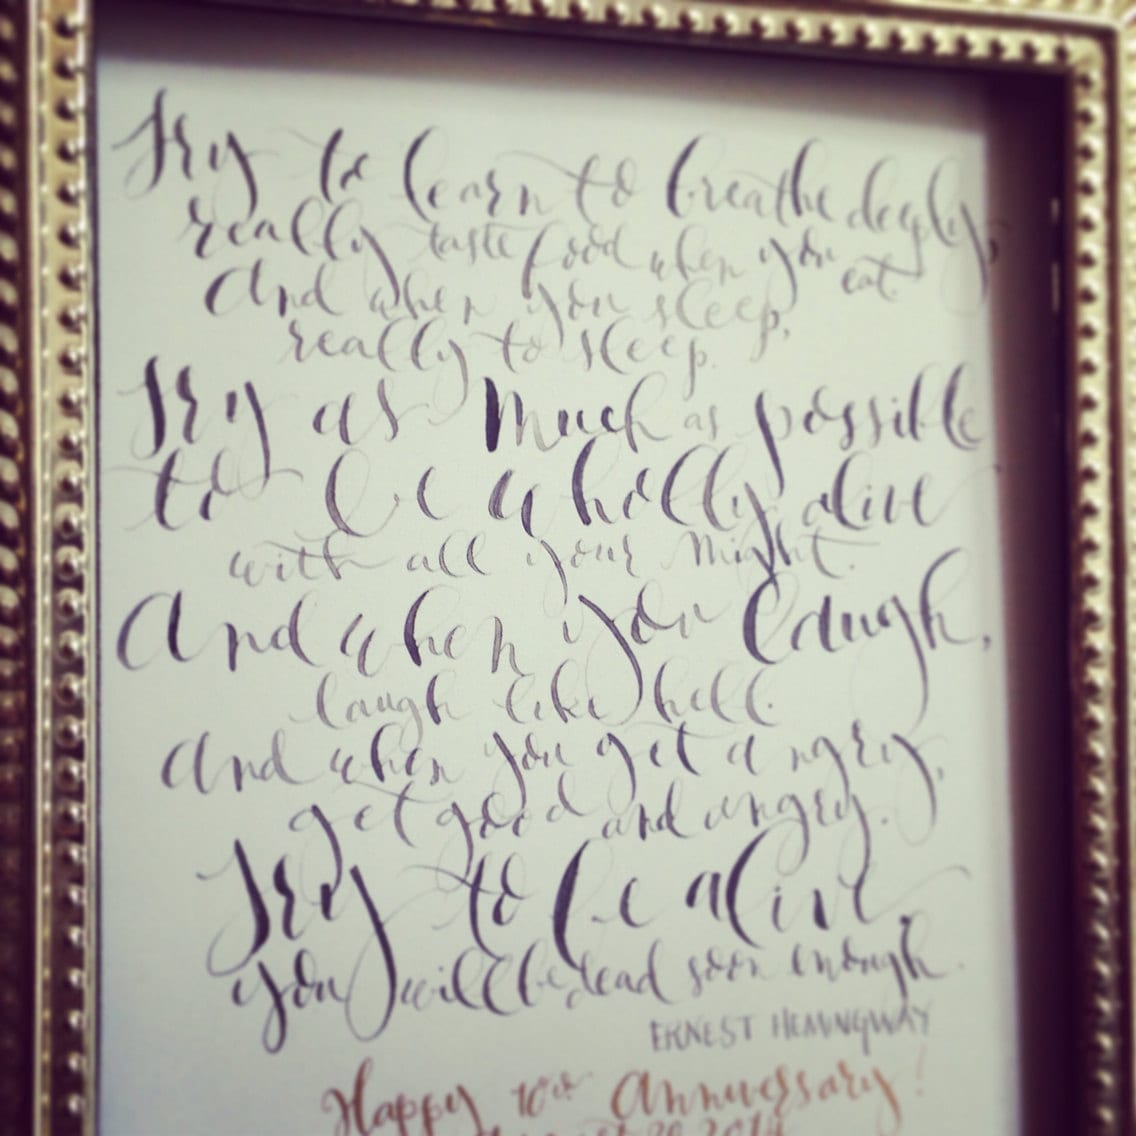 Try to learn to breathe deeply,
really taste food when you eat.
And when you sleep,
really to sleep.
Try as much as possible
to be wholly alive
with all your might.
And when you laugh,
laugh like hell.
And when you get angry,
get good and angry.
Try to be alive,
you will be dead soon enough.
ERNEST HEMINGWAY
Happy 10th Anniversary!